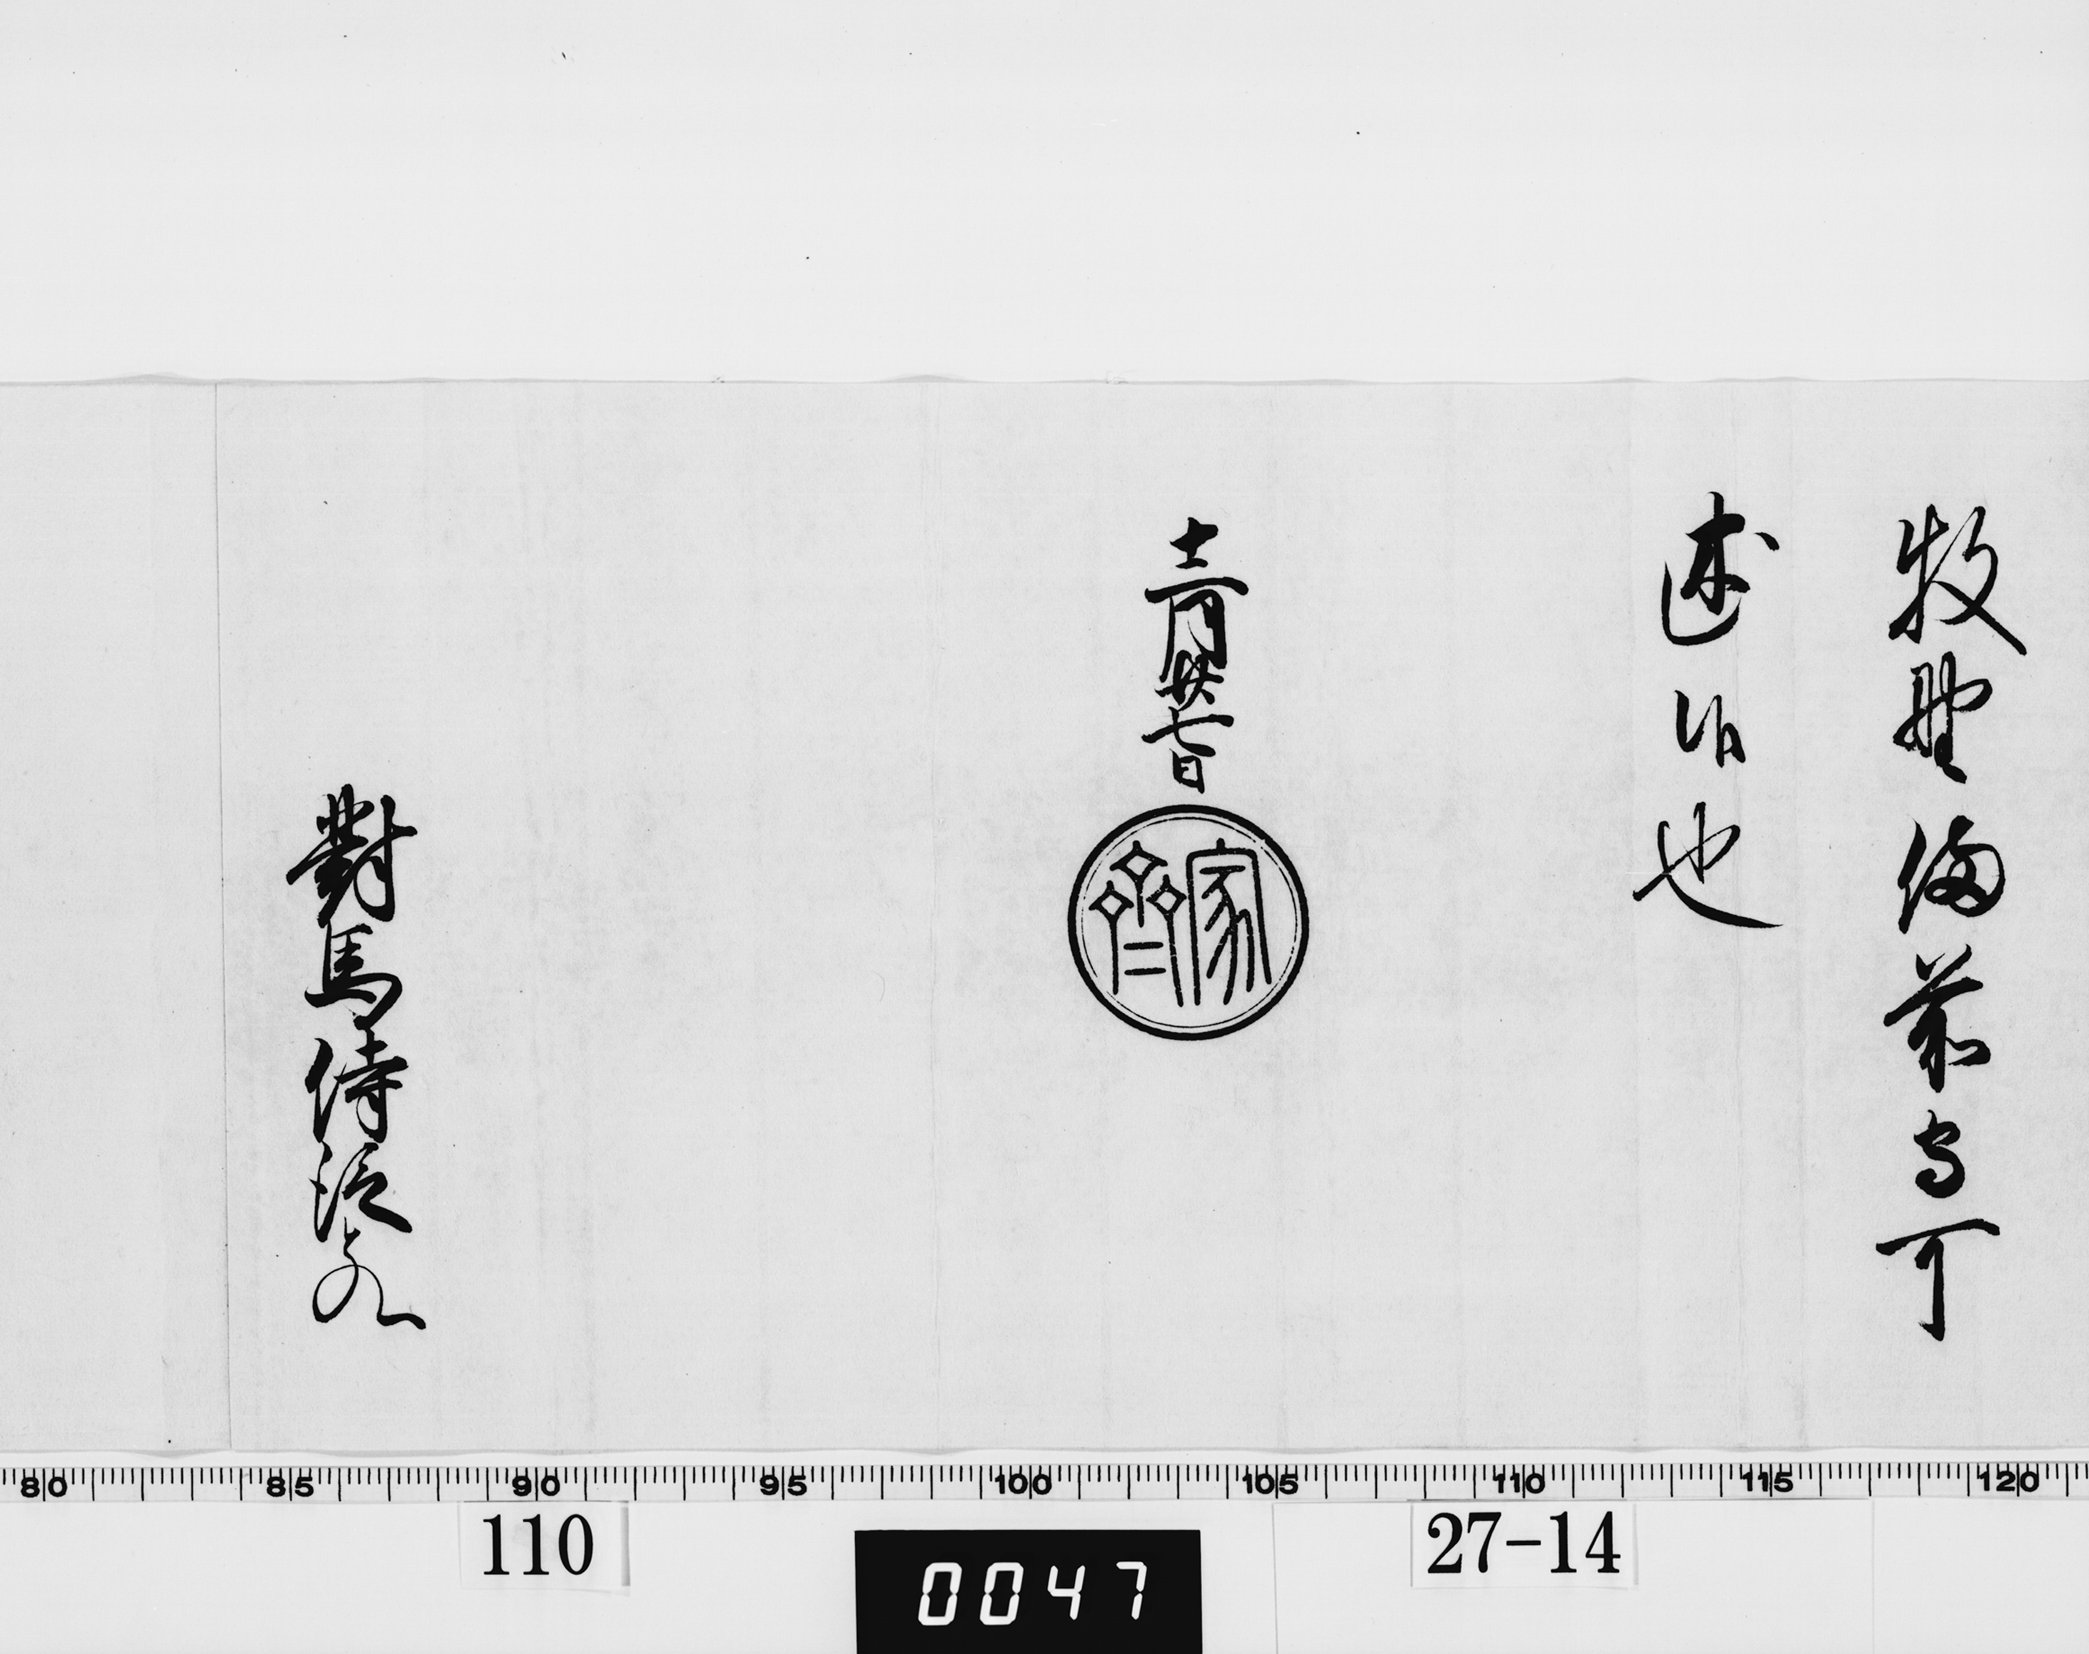 牧野備前守可
述候也
十二月廿七日
家齊
對馬侍従とのへ
80 85 90 95 100 105 110 115 120
110
0047
27-14